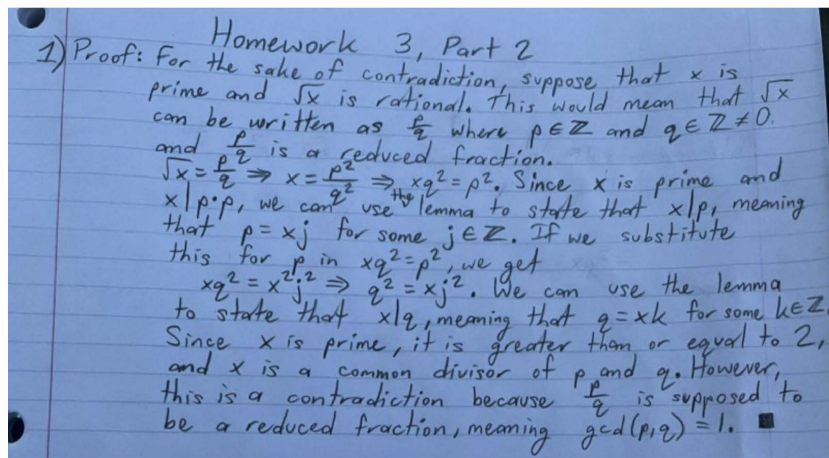 Homework 3, Part 2
1) Proof: For the sake of contradiction, suppose that x is
prime and √x is rational. This would mean that √x
can be written as p/q where p∈ℤ and q∈ℤ≠0.
and p/q is a reduced fraction.
√x = p/q ⇒ x = p²/q² ⇒ xq² = p². Since x is prime and
x|p·p, we can use the lemma to state that x|p, meaning
that p = xj for some j∈ℤ. If we substitute
this for p in xq²=p², we get
xq² = x²j² ⇒ q² = xj². We can use the lemma
to state that x|q, meaning that q = xk for some k∈ℤ.
Since x is prime, it is greater than or equal to 2,
and x is a common divisor of p and q. However,
this is a contradiction because p/q is supposed to
be a reduced fraction, meaning gcd(p,q) = 1. ■